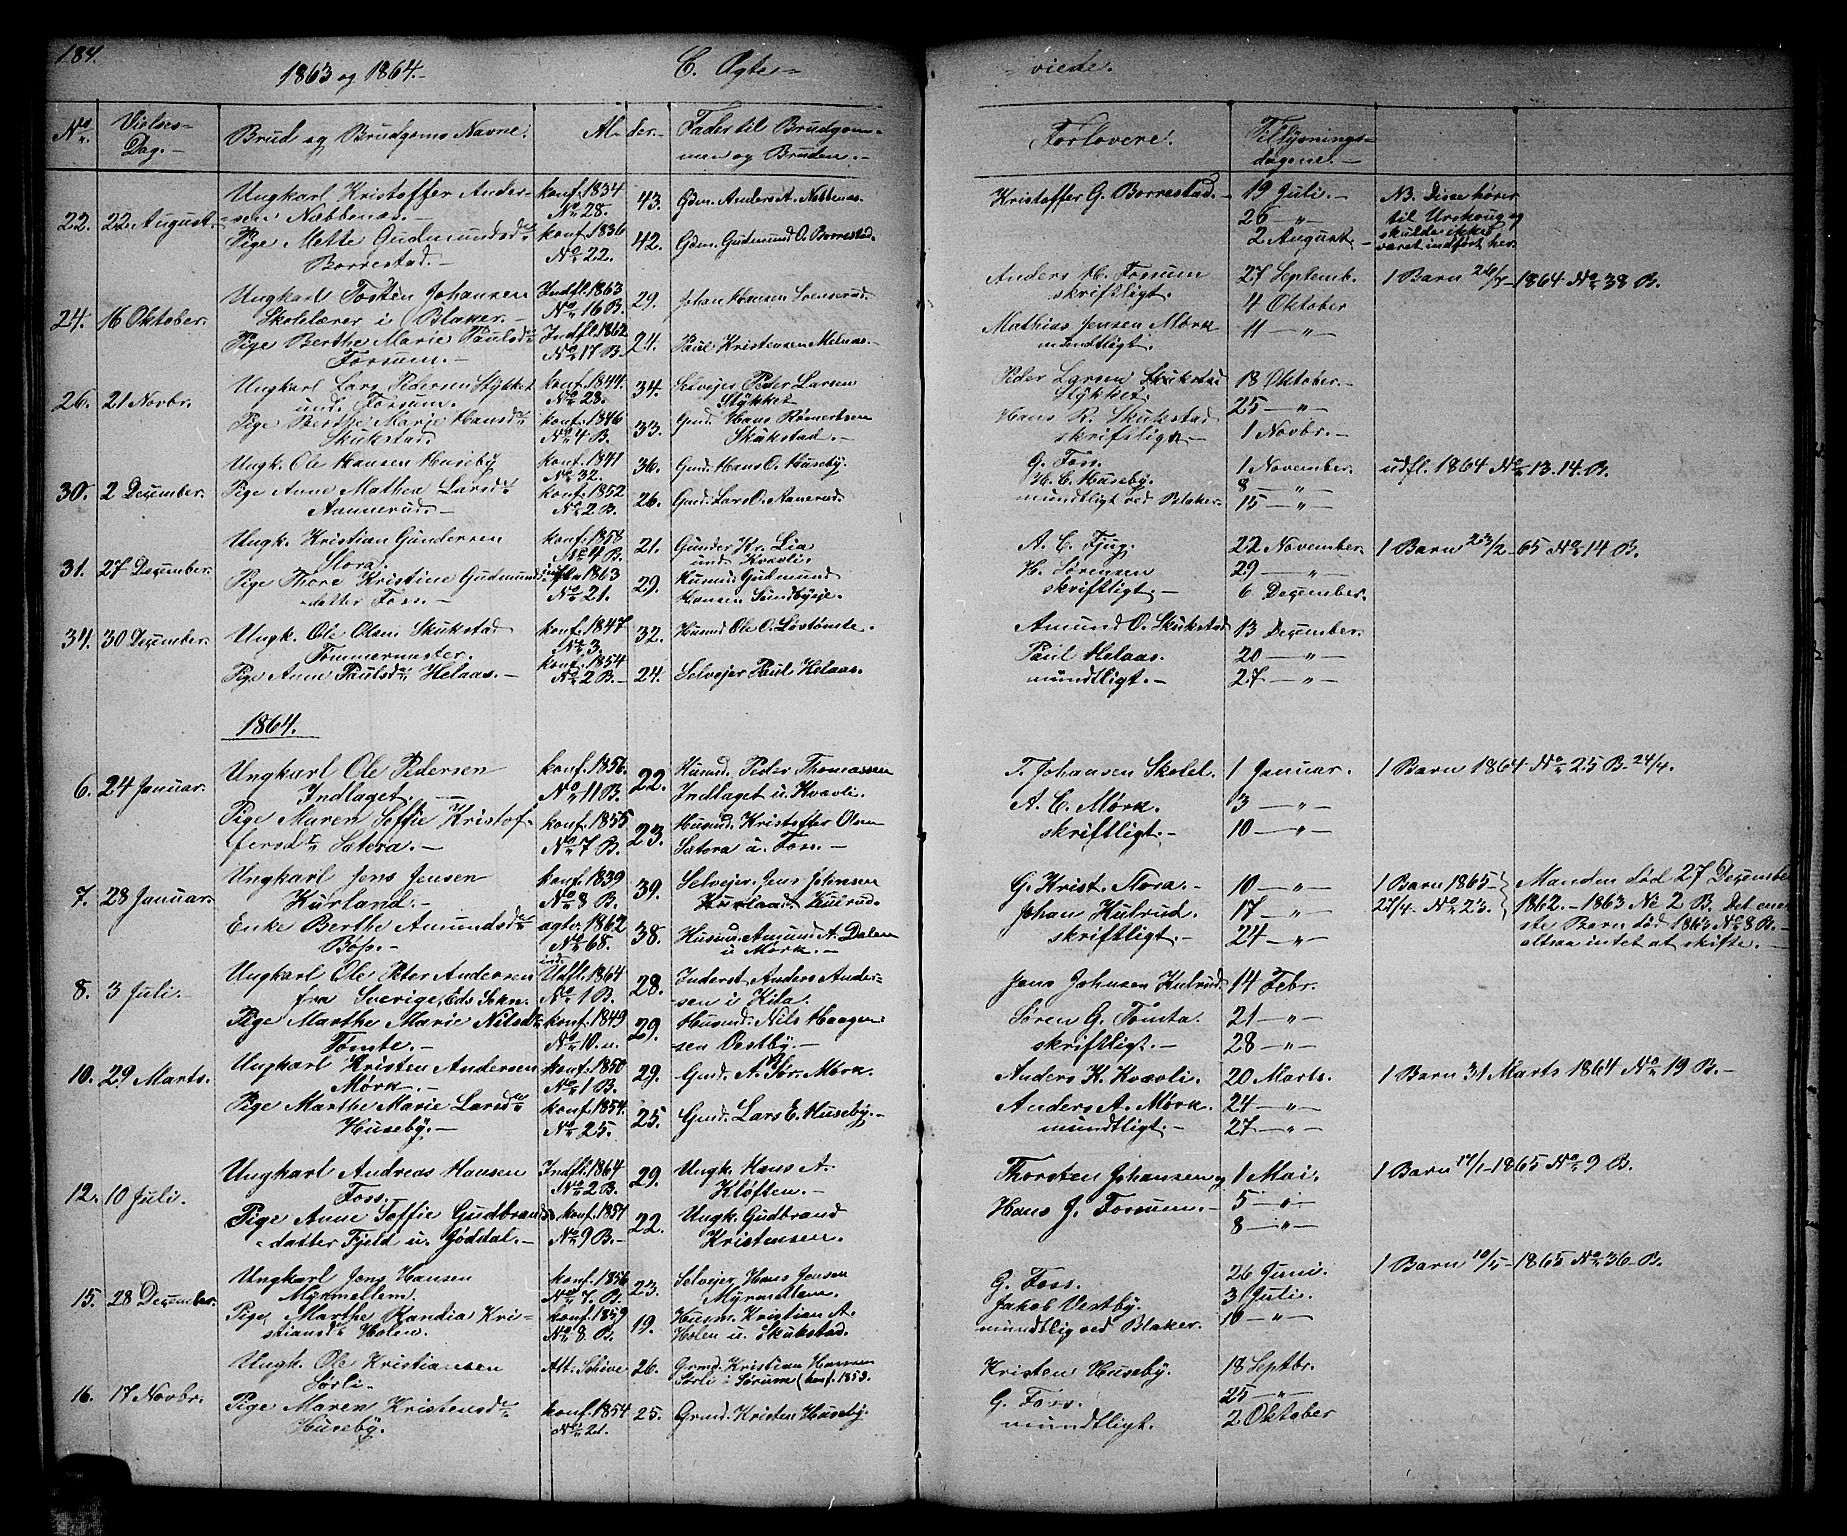 184.
1863 og 1864.-
C. Ægte-
-viede.
No.
Vielses-
Dag.-
Brud og Brudgoms Navne.
Al-
der.-
Fader til Brudgom-
men og Bruden.-
Forlovere.
Tillysnings-
dagene.-
22.
22 August.-
Ungkarl Kristoffer Ander-
-sen Næbbenæs.-
Pige Mette Gudmundsd.
Borrestad.-
konf. 1834
No. 28.
konf. 1836
No. 22.
43.
42.
Gdm. Anders A. Nebbenæs.
Gdm. Gudmund O. Borrestad.
Kristoffer G. Borrestad.-
19 Juli.-
26 -"-
2 August.-
NB. Disse hører
til Urskoug og
skulde ikke
været indført her.
24.
16 Oktober.
Ungkarl Tosten Johansen
Skolelærer i Blaker.-
Pige Berthe Marie Paulsd.
Forsum.-
Indfl. 1863
No. 16 B.
Indfl. 1862
No. 17 B.
29.
24.
Johan Hansen Svenserud.
Paul Kristensen Melnæs.-
Anders H. Forsum
skriftligt.
Mathias Jensen Mørk
mundtligt.
27 Septemb.
4 Oktober
11 -"-
1 Barn 26/7-1864 No. 38 B.
26.
21 Novbr.
Ungkarl Lars Pedersen Stykket
und. Forsum.-
Pige Berthe Marie Hansd.
Skukstad.
konf. 1844.
No. 28.
konf. 1846
No. 4 B.
34.
33.
Selvejer Peder Larsen
Stykket
Gmd. Hans Rømertsen
Skukstad.-
Peder Larsen Skukstad
Stykket.
Hans R. Skukstad
skriftligt.-
18 Oktober.-
25 -"-
1 Novbr.-
30.
2 December.
Ungk. Ole Hansen Huseby
Pige Anne Mathea Larsd.
Aannerud.-
konf. 1841
No. 32.
konf. 1852
No. 2 B.
36.
26.
Gmd. Hans O. Huseby.
Gmd. Lars O. Aanerud.
G. Foss.
H. C. Huseby.
mundtligt ved Blaker.-
1 November.
8 -"-
15 -"-
udfl. 1864 No. 13.14. B.
31.
27 December.
Ungk. Kristian Gundersen
Stora.
Pige Thore Kristine Gudmunds-
-datter Foss.-
konf. 1858
No. 4 B.
indfl. 1863
No. 21.
21.
29.
Gunder Kr. Lia
und Kvævli.
Husmd. Gudmund
Hansen Sundbyeje.
A. C. Fjug.
H. Sørensen
skriftligt.-
22 November.
29 -"-
6 December.
1 Barn 23/2-65 No. 14 B.
34.
30 December.
Ungk. Ole Olsen Skukstad
Tømmermester.
Pige Anne Paulsd. Helaas.-
konf. 1847
No. 3.
konf. 1854
No. 2 B.-
32.
24.
Husmd Ole O. Løstømte.
Selvejer Paul Helaas.
Amund O. Skukstad
Paul Helaas.
mundtligt.-
13 December.
20 -"-
27 -"-
1864.
6.
24 Januar.
Ungkarl Ole Pedersen
Indlaget.-
Pige Maren Soffie Kristof-
fersd. Satora.-
konf. 1856.
No. 11 B.
konf. 1855
No. 7 B.
22.
23.
Husmd. Peder Thomassen
Indlaget u. Kvævli.
Husmd. Kristoffer Olsen
Satora u. Foss.-
T. Johansen Skolel.
A. C. Mørk.
skriftligt.-
1 Januar.
3 -"-
10 -"-
1 Barn 1864 No. 25 B. 24/4.
7.
28 Januar.
Ungkarl Jens Jensen
Kurland.-
Enke Berthe Amundsd.
Boss.-
konf. 1839
No. 8 B.
agte. 1862
No. 68.
39.
38.
Selvejer Jens Johnsen
Kurlaat. Kulrud.
Husmd. Amund A. Dalen
u. Mørk.-
G. Krist. Stora.-
Johan Kulrud.
skriftligt.-
10 -"-
17 -"-
24 -"-
1 Barn 1865-
27/4. No. 23.
Manden død 27 December
1862.-1863 No. 2 B. Det ene-
ste Barn død 1863 No. 8 B.-
altsaa intet at skifte.-
8.
3 Juli.-
Ungkarl Ole Peter Andersen
fra Sverige, Eds Sokn.
Pige Marthe Marie Nilsd.
Tømte.-
ind-
Vatl. 1864
No. 1 B.
konf. 1849
No. 10. u.
28.
29.
Inderst Anders Ander-
-sen i Kila.
Husmd. Nils Haagen-
sen Vestby.-
Jens Johnsen Kulrud
Søren G. Tomta.
skriftligt.-
14 Febr.
21 -"-
28 -"-
10.
29 Marts.
Ungkarl Kristen Andersen
Mørk.-
Pige Marthe Marie Larsd.
Huseby.-
konf. 1850
No. 1 B.
konf. 1854.
No. 25.
29.
25.
Gmd. A. Tør. Mørk.
Gmd. Lars E. Huseby.-
Anders K. Kvævli.
Anders A. Mørk.
mundtligt.-
20 Marts.
24 -"-
27 -"-
1 Barn 31 Marts 1864 No. 19 B.-
12.
10 Juli.
Ungkarl Andreas Hansen
Foss.
Pige Anne Soffie Gudbrands-
-datter Fjeld u. Jøddal.-
Indfl. 1864
No. 2 B.
konf. 1857
No. 9 B.-
29.
22.
Ungk. Hans A.
Kløften.-
Ungk. Gudbrand
Kristensen.
Thorsten Johansen og
Hans J. Forsum.-
1 Mai.
5 -"-
8 -"-
1 Barn 17/1-1865 No. 9 B.
15.
28 December.
Ungkarl Jens Hansen
Myrmellem.
Pige Marthe Randia Kri-
stiansd. Holen.
konf. 1856
No. 7. B.
konf. 1859
No. 8. B.
23.
19.
Selvejer Hans Jensen
Myrmellem.
Husm. Kristian A.
Holen u. Skukstad.
G. Foss.
Jakob Vestby.
mundtlig ved Blaker.
26 Juni.
3 Juli.
10 -"-
1 Barn 10/5-1865 No. 36 B.
16.
17 Novbr.
Ungk. Ole Kristiansen
Sørli.
Pige Maren Kristensd.
Huseby.
Att. Schive
konf. 1854
No. 21.
26.
25.
Grmd. Kristian Hansen
Sørli i Sørum (konf. 1853.
Grmd. Kristen Huseby.
Kristen Huseby.
G. Foss.
mundtligt.
18 Septbr.
25 -"-
2 Oktober